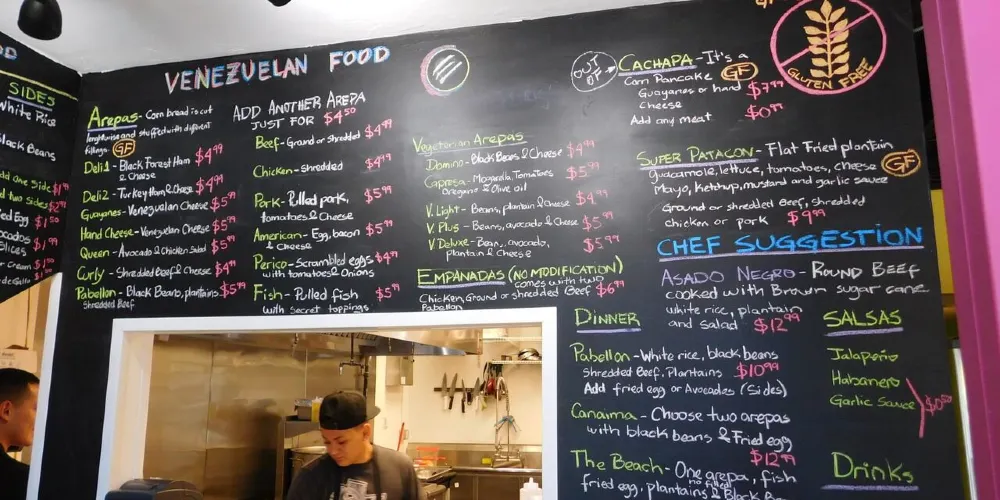 SIDES
White Rice
Black Beans
Add one Side $1
two sides $2
Fried Egg $1.50
Avocados
Slices $1.99
VENEZUELAN FOOD
Arepas - Corn bread is cut
lengthwise and stuffed with different
fillings. GF
Deli1 - Black Forest Ham $4.99
& Cheese
Deli2 - Turkey Ham & Cheese $4.99
Guayanes - Venezuelan Cheese $5.99
Hand Cheese - Venezuelan Cheese $5.99
Queen - Avocado & Chicken Salad $5.99
Curly - Shredded Beef & Cheese $4.99
Pabellon - Black Beans, plantains $5.99
Shredded Beef
ADD ANOTHER AREPA
JUST FOR $4.50
Beef - Ground or shredded $4.99
Chicken - shredded $4.99
Pork - Pulled pork, $5.99
tomatoes & Cheese
American - Egg, bacon $5.99
& Cheese
Perico - Scrambled eggs $4.99
with tomatoes & Onions
Fish - Pulled fish $5.99
with secret toppings
Vegetarian Arepas
Domino - Black Beans & Cheese $4.99
Capresa - Mozzarella, Tomatoes $5.99
Oregano & Olive oil
V. Light - Beans, plantain & Cheese $4.99
V. Plus - Beans, avocado & Cheese $5.99
V Deluxe - Bean, avocado, $5.99
plantain & Cheese
EMPANADAS (NO MODIFICATION)
comes with two
Chicken, Ground or shredded Beef $6.99
Pabellon
OUT OF
CACHAPA - It's a
Corn Pancake GF
Guayanes or hand $7.99
Cheese
Add any meat $0.99
GF
GLUTEN FREE
SUPER PATACON - Flat Fried plantain
guacamole, lettuce, tomatoes, cheese GF
Mayo, ketchup, mustard and garlic sauce
Ground or shredded Beef, shredded
chicken or pork $9.99
CHEF SUGGESTION
ASADO NEGRO - ROUND BEEF
cooked with Brown sugar cane
white rice, plantain
and salad $12.99
DINNER
Pabellon - White rice, black beans
shredded Beef, Plantains $10.99
Add fried egg or Avocados (Sides)
Canaima - Choose two arepas
with black beans & Fried egg
$12.99
The Beach - One arepa, fish
no filled
fried egg, plantains & Black
SALSAS
Jalapeño
Habanero
Garlic Sauce
$0.50
Drinks